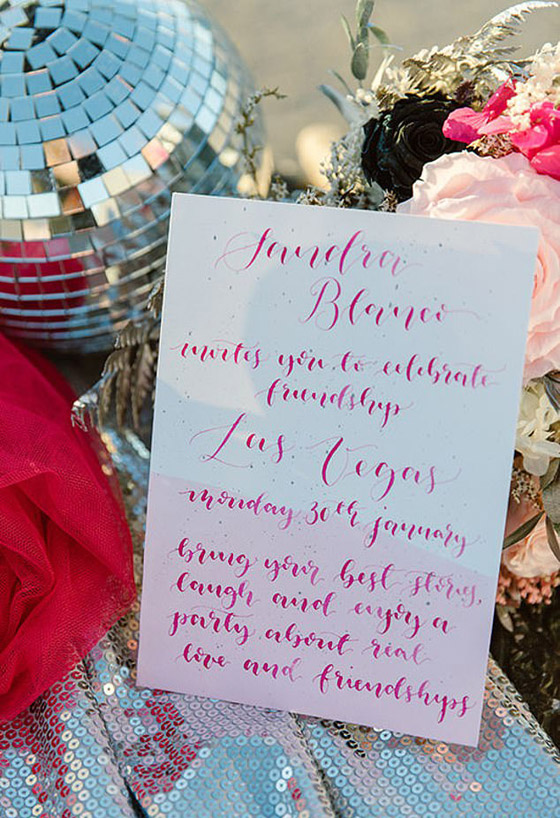 Sandra
Blanco
invites you to celebrate
friendship
Las Vegas
monday 30th january
bring your best stories,
laugh and enjoy a
party about real
love and friendships